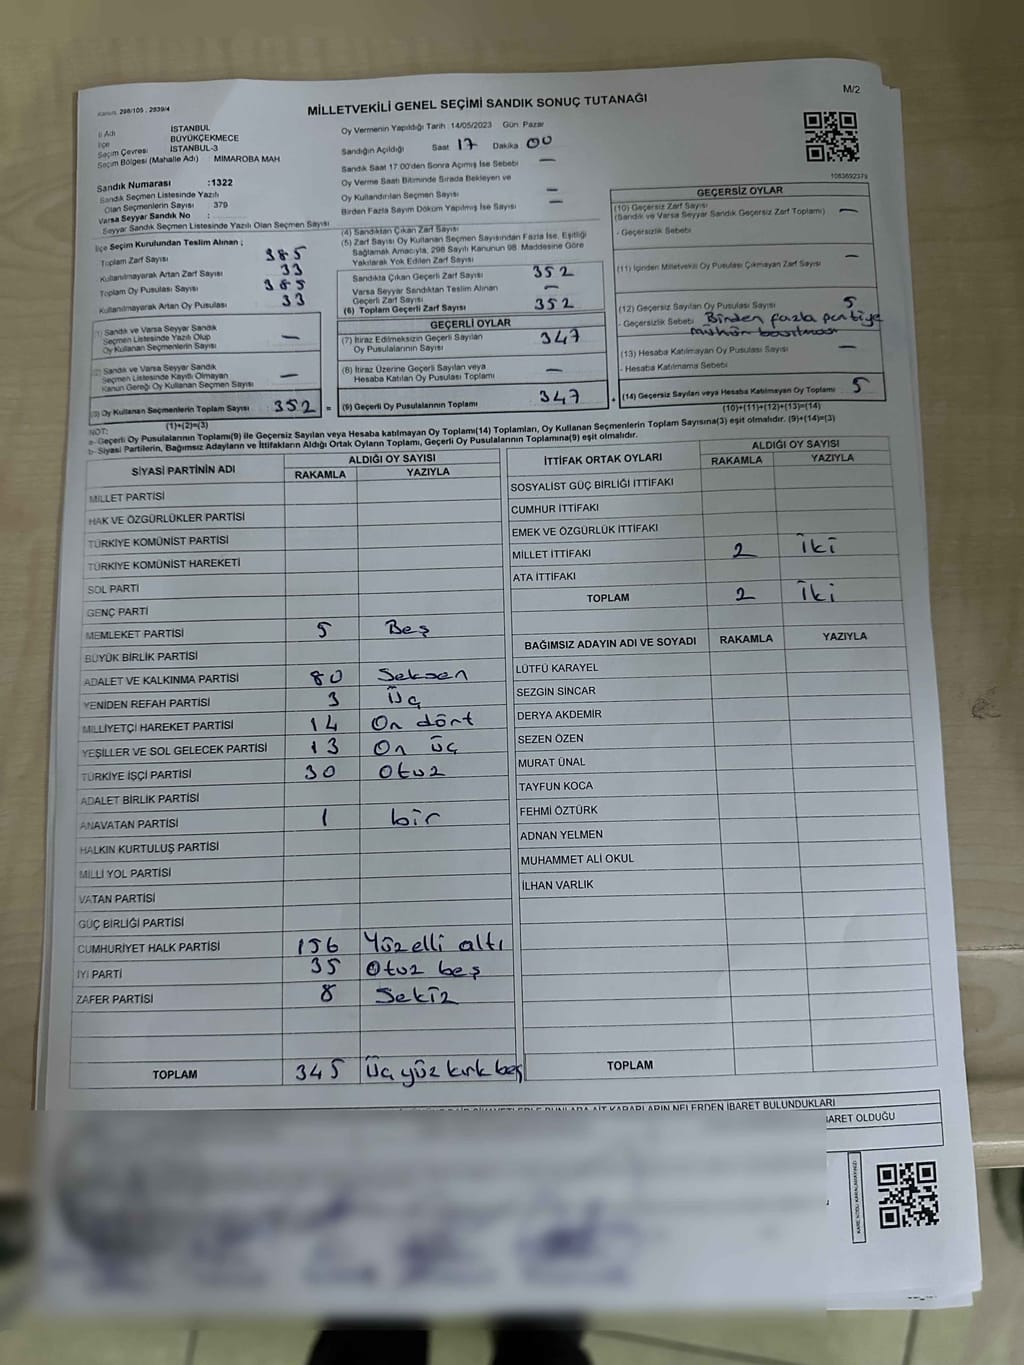 Kanun: 298/105 , 2839/4
M/2
MİLLETVEKİLİ GENEL SEÇİMİ SANDIK SONUÇ TUTANAĞI
İl Adı İSTANBUL
İlçe BÜYÜKÇEKMECE
Seçim Çevresi İSTANBUL-3
Seçim Bölgesi (Mahalle Adı) MİMAROBA MAH
Sandık Numarası :1322
Sandık Seçmen Listesinde Yazılı
Olan Seçmenlerin Sayısı 379
Varsa Seyyar Sandık No :
Seyyar Sandık Seçmen Listesinde Yazılı Olan Seçmen Sayısı
İlçe Seçim Kurulundan Teslim Alınan ;
Toplam Zarf Sayısı 385
Kullanılmayarak Artan Zarf Sayısı 33
Toplam Oy Pusulası Sayısı 385
Kullanılmayarak Artan Oy Pusulası 33
(1) Sandık ve Varsa Seyyar Sandık
Seçmen Listesinde Yazılı Olup
Oy Kullanan Seçmenlerin Sayısı —
(2) Sandık ve Varsa Seyyar Sandık
Seçmen Listesinde Kayıtlı Olmayan
Kanun Gereği Oy Kullanan Seçmen Sayısı —
(3) Oy Kullanan Seçmenlerin Toplam Sayısı 352 =
(1)+(2)=(3)
Oy Vermenin Yapıldığı Tarih :14/05/2023 Gün: Pazar
Sandığın Açıldığı Saat 17 Dakika 00
Sandık Saat 17.00'den Sonra Açılmış İse Sebebi —
Oy Verme Saati Bitiminde Sırada Bekleyen ve
Oy Kullandırılan Seçmen Sayısı —
Birden Fazla Sayım Döküm Yapılmış İse Sayısı —
(4) Sandıktan Çıkan Zarf Sayısı
(5) Zarf Sayısı Oy Kullanan Seçmen Sayısından Fazla İse, Eşitliği
Sağlamak Amacıyla, 298 Sayılı Kanunun 98. Maddesine Göre
Yakılarak Yok Edilen Zarf Sayısı
Sandıkta Çıkan Geçerli Zarf Sayısı 352
Varsa Seyyar Sandıktan Teslim Alınan
Geçerli Zarf Sayısı —
(6) Toplam Geçerli Zarf Sayısı 352
GEÇERLİ OYLAR
(7) İtiraz Edilmeksizin Geçerli Sayılan
Oy Pusulalarının Sayısı 347
(8) İtiraz Üzerine Geçerli Sayılan veya
Hesaba Katılan Oy Pusulası Toplamı —
(9) Geçerli Oy Pusulalarının Toplamı 347 +
1083692379
GEÇERSİZ OYLAR
(10) Geçersiz Zarf Sayısı
(Sandık ve Varsa Seyyar Sandık Geçersiz Zarf Toplamı) —
- Geçersizlik Sebebi
(11) İçinden Milletvekili Oy Pusulası Çıkmayan Zarf Sayısı —
(12) Geçersiz Sayılan Oy Pusulası Sayısı 5
- Geçersizlik Sebebi Birden fazla partiye
mühür basılması
(13) Hesaba Katılmayan Oy Pusulası Sayısı —
- Hesaba Katılmama Sebebi
(14) Geçersiz Sayılan veya Hesaba Katılmayan Oy Toplamı 5
(10)+(11)+(12)+(13)=(14)
NOT:
a- Geçerli Oy Pusulalarının Toplamı(9) ile Geçersiz Sayılan veya Hesaba Katılmayan Oy Toplamı(14) Toplamları, Oy Kullanan Seçmenlerin Toplam Sayısına(3) eşit olmalıdır. (9)+(14)=(3)
b- Siyasi Partilerin, Bağımsız Adayların ve İttifakların Aldığı Ortak Oyların Toplamı, Geçerli Oy Pusulalarının Toplamına(9) eşit olmalıdır.
SİYASİ PARTİNİN ADI ALDIĞI OY SAYISI
RAKAMLA YAZIYLA
MİLLET PARTİSİ
HAK VE ÖZGÜRLÜKLER PARTİSİ
TÜRKİYE KOMÜNİST PARTİSİ
TÜRKİYE KOMÜNİST HAREKETİ
SOL PARTİ
GENÇ PARTİ
MEMLEKET PARTİSİ 5 Beş
BÜYÜK BİRLİK PARTİSİ
ADALET VE KALKINMA PARTİSİ 80 Seksen
YENİDEN REFAH PARTİSİ 3 Üç
MİLLİYETÇİ HAREKET PARTİSİ 14 On dört
YEŞİLLER VE SOL GELECEK PARTİSİ 13 On üç
TÜRKİYE İŞÇİ PARTİSİ 30 Otuz
ADALET BİRLİK PARTİSİ
ANAVATAN PARTİSİ 1 bir
HALKIN KURTULUŞ PARTİSİ
MİLLİ YOL PARTİSİ
VATAN PARTİSİ
GÜÇ BİRLİĞİ PARTİSİ
CUMHURİYET HALK PARTİSİ 156 Yüz elli altı
İYİ PARTİ 35 Otuz beş
ZAFER PARTİSİ 8 Sekiz
TOPLAM 345 Üç yüz kırk beş
İTTİFAK ORTAK OYLARI ALDIĞI OY SAYISI
RAKAMLA YAZIYLA
SOSYALİST GÜÇ BİRLİĞİ İTTİFAKI
CUMHUR İTTİFAKI
EMEK VE ÖZGÜRLÜK İTTİFAKI
MİLLET İTTİFAKI 2 İki
ATA İTTİFAKI
TOPLAM 2 İki
BAĞIMSIZ ADAYIN ADI VE SOYADI RAKAMLA YAZIYLA
LÜTFÜ KARAYEL
SEZGİN SİNCAR
DERYA AKDEMİR
SEZEN ÖZEN
MURAT ÜNAL
TAYFUN KOCA
FEHMİ ÖZTÜRK
ADNAN YELMEN
MUHAMMET ALİ OKUL
İLHAN VARLIK
TOPLAM
KARARLARIN NELERDEN İBARET BULUNDUKLARI
İBARET OLDUĞU